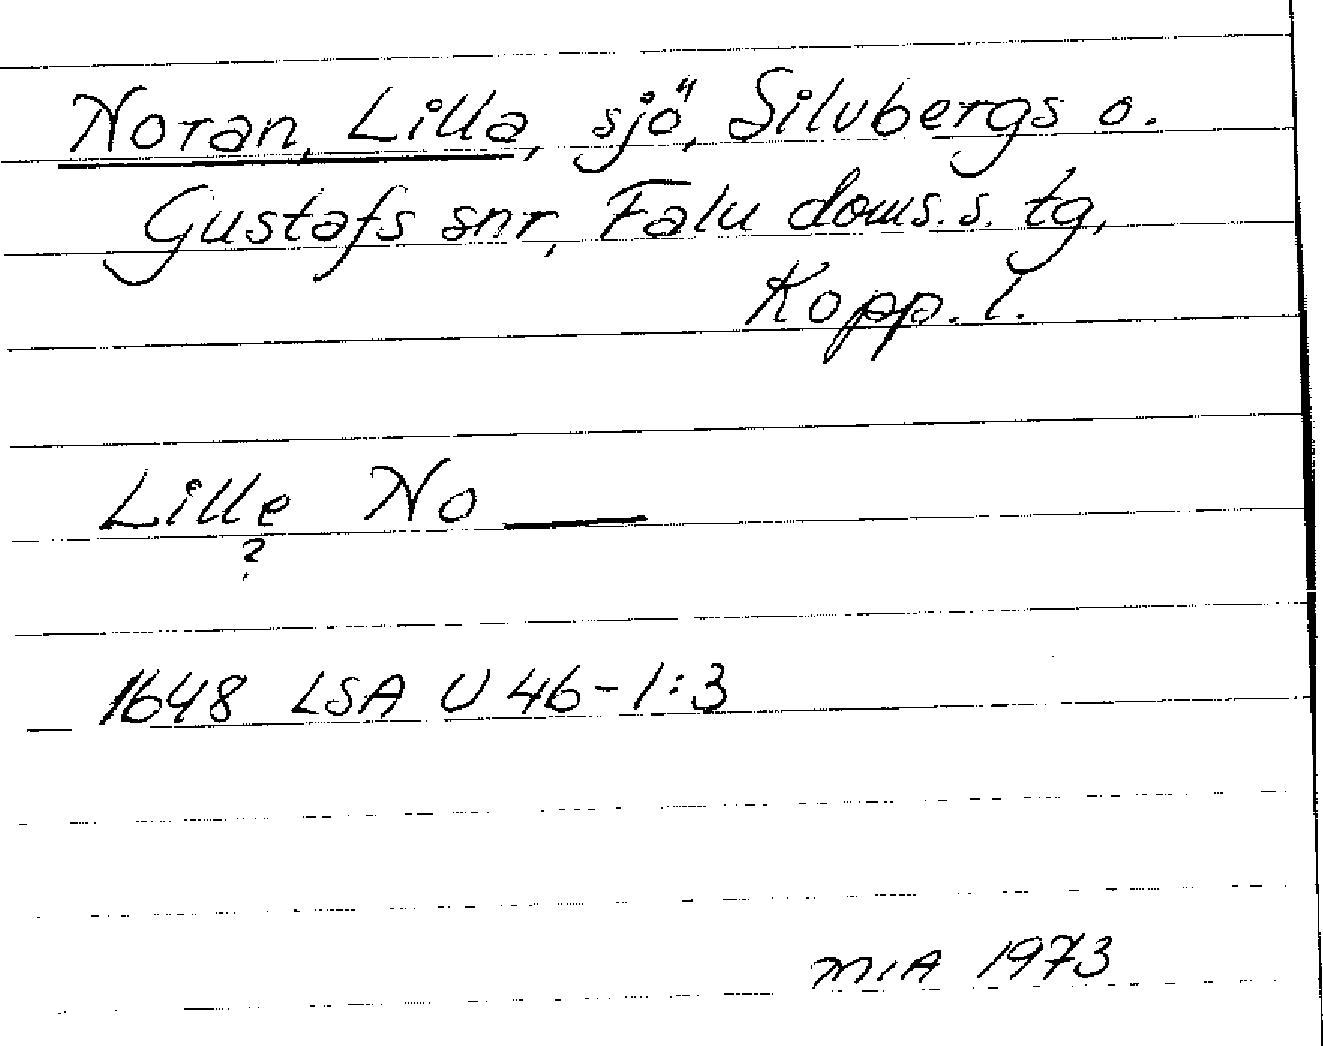 Noran, Lilla, sjö, Silvbergs o.
Gustafs snr, Falu doms.s. tg,
Kopp. l.
Lille No ____
?
1648 LSA U 46-1:3
MIA 1973